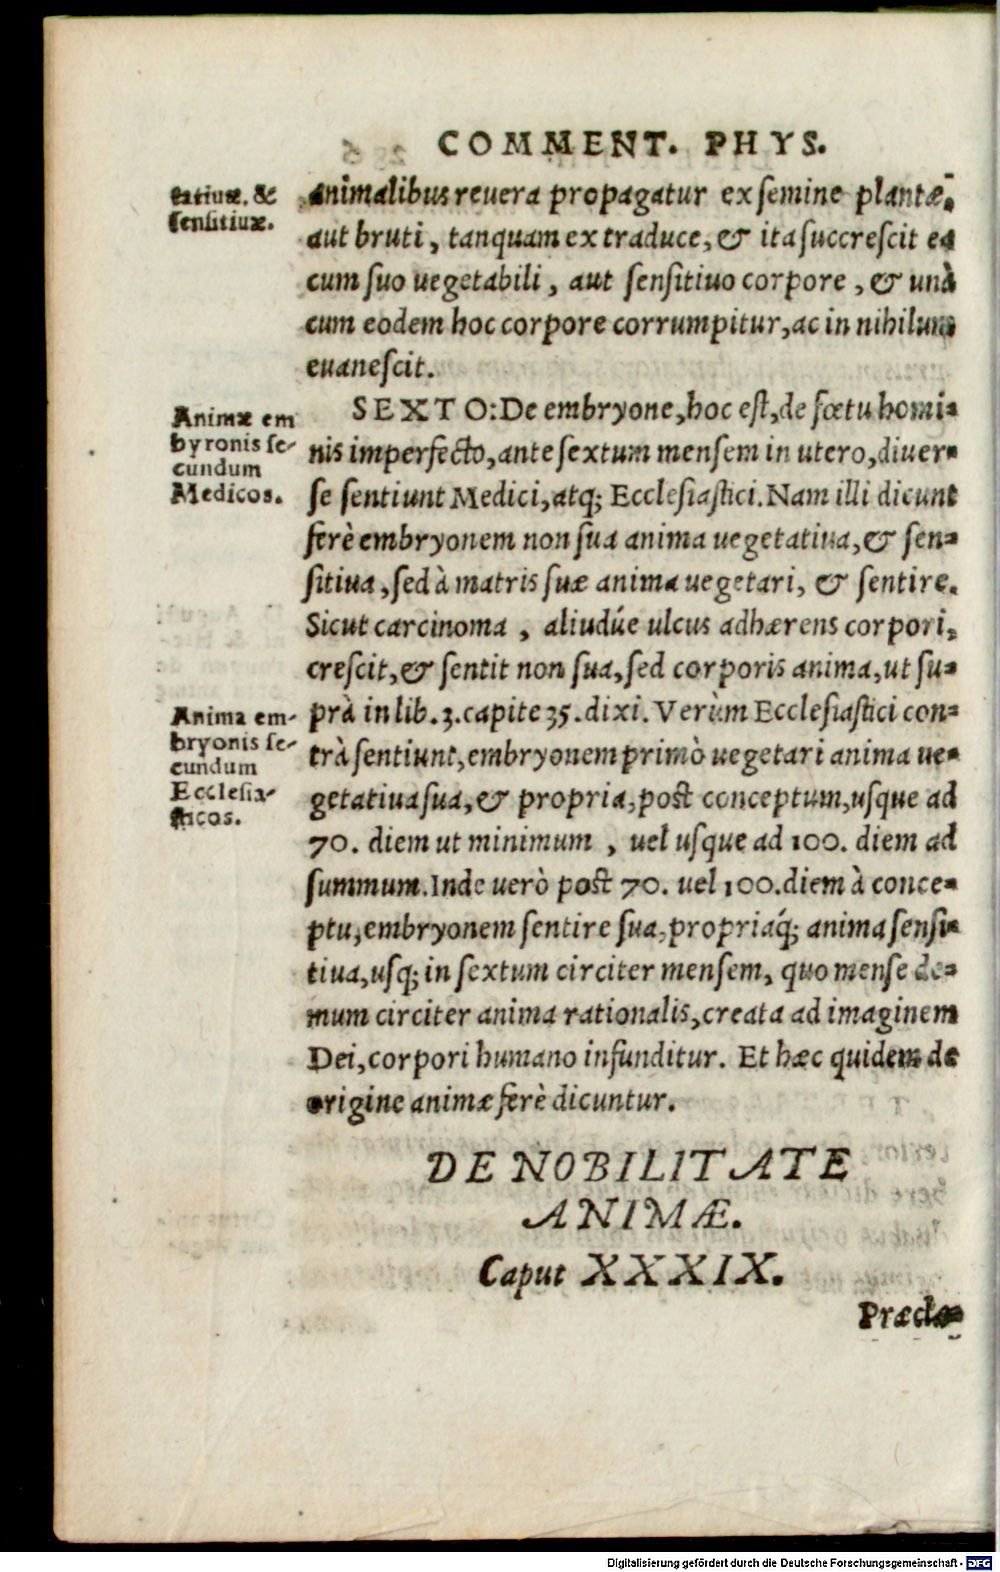 COMMENT. PHYS.
tatiuæ. &
sensitiuæ.
animalibus reuera propagatur ex semine plantæ,
aut bruti, tanquam ex traduce, & ita succrescit ea
cum suo uegetabili, aut sensitiuo corpore, & unà
cum eodem hoc corpore corrumpitur, ac in nihilum
euanescit.
Animæ em
byronis se-
cundum
Medicos.
SEXTO: De embryone, hoc est, de fœtu homi-
nis imperfecto, ante sextum mensem in utero, diuer-
se sentiunt Medici, atq; Ecclesiastici. Nam illi dicunt
ferè embryonem non sua anima uegetatiua, & sen-
sitiua, sed à matris suæ anima uegetari, & sentire.
Sicut carcinoma, aliudúe ulcus adhærens corpori,
crescit, & sentit non sua, sed corporis anima, ut su-
prà in lib. 3. capite 35. dixi. Verùm Ecclesiastici con-
Anima em-
bryonis se-
cundum
Ecclesia-
sticos.
trà sentiunt, embryonem primò uegetari anima ue-
getatiua sua, & propria, post conceptum, usque ad
70. diem ut minimum, uel usque ad 100. diem ad
summum. Inde uerò post 70. uel 100. diem à conce-
ptu, embryonem sentire sua, propriaq́; anima sensi-
tiua, usq; in sextum circiter mensem, quo mense de-
mum circiter anima rationalis, creata ad imaginem
Dei, corpori humano infunditur. Et hæc quidem de
origine animæ ferè dicuntur.
DE NOBILITATE
ANIMÆ.
Caput XXXIX.
Præcla-
Digitalisierung gefördert durch die Deutsche Forschungsgemeinschaft - DFG